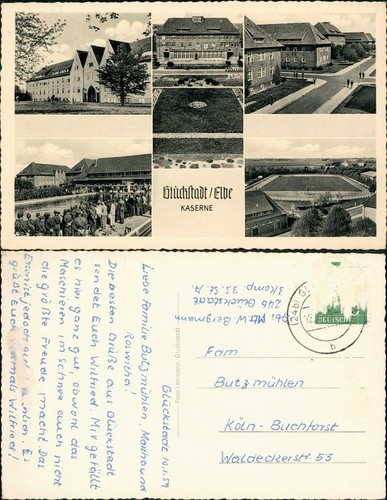 Glückstadt/Elbe
KASERNE
Glückstadt 10.1.59
Liebe Familie Butzmühlen, Manh und
Roswitha!
Die besten Grüße aus Glückstadt
sendet Euch Wilfried. Mir gefällt
es hier ganz gut, obwohl das
Maschieren im Schnee auch nicht
die größte Freude macht. Das
jedoch
grüßt Euch Wilfried!
W. Bergmann
24b Glückstadt
3 Komp. 3 S. St. A.
Foto Lohmann, Glückstadt
(24b) Gl
b
DEUTSCHE
Fam.
Butzmühlen
Köln-Buchforst
Waldeckerstr. 53